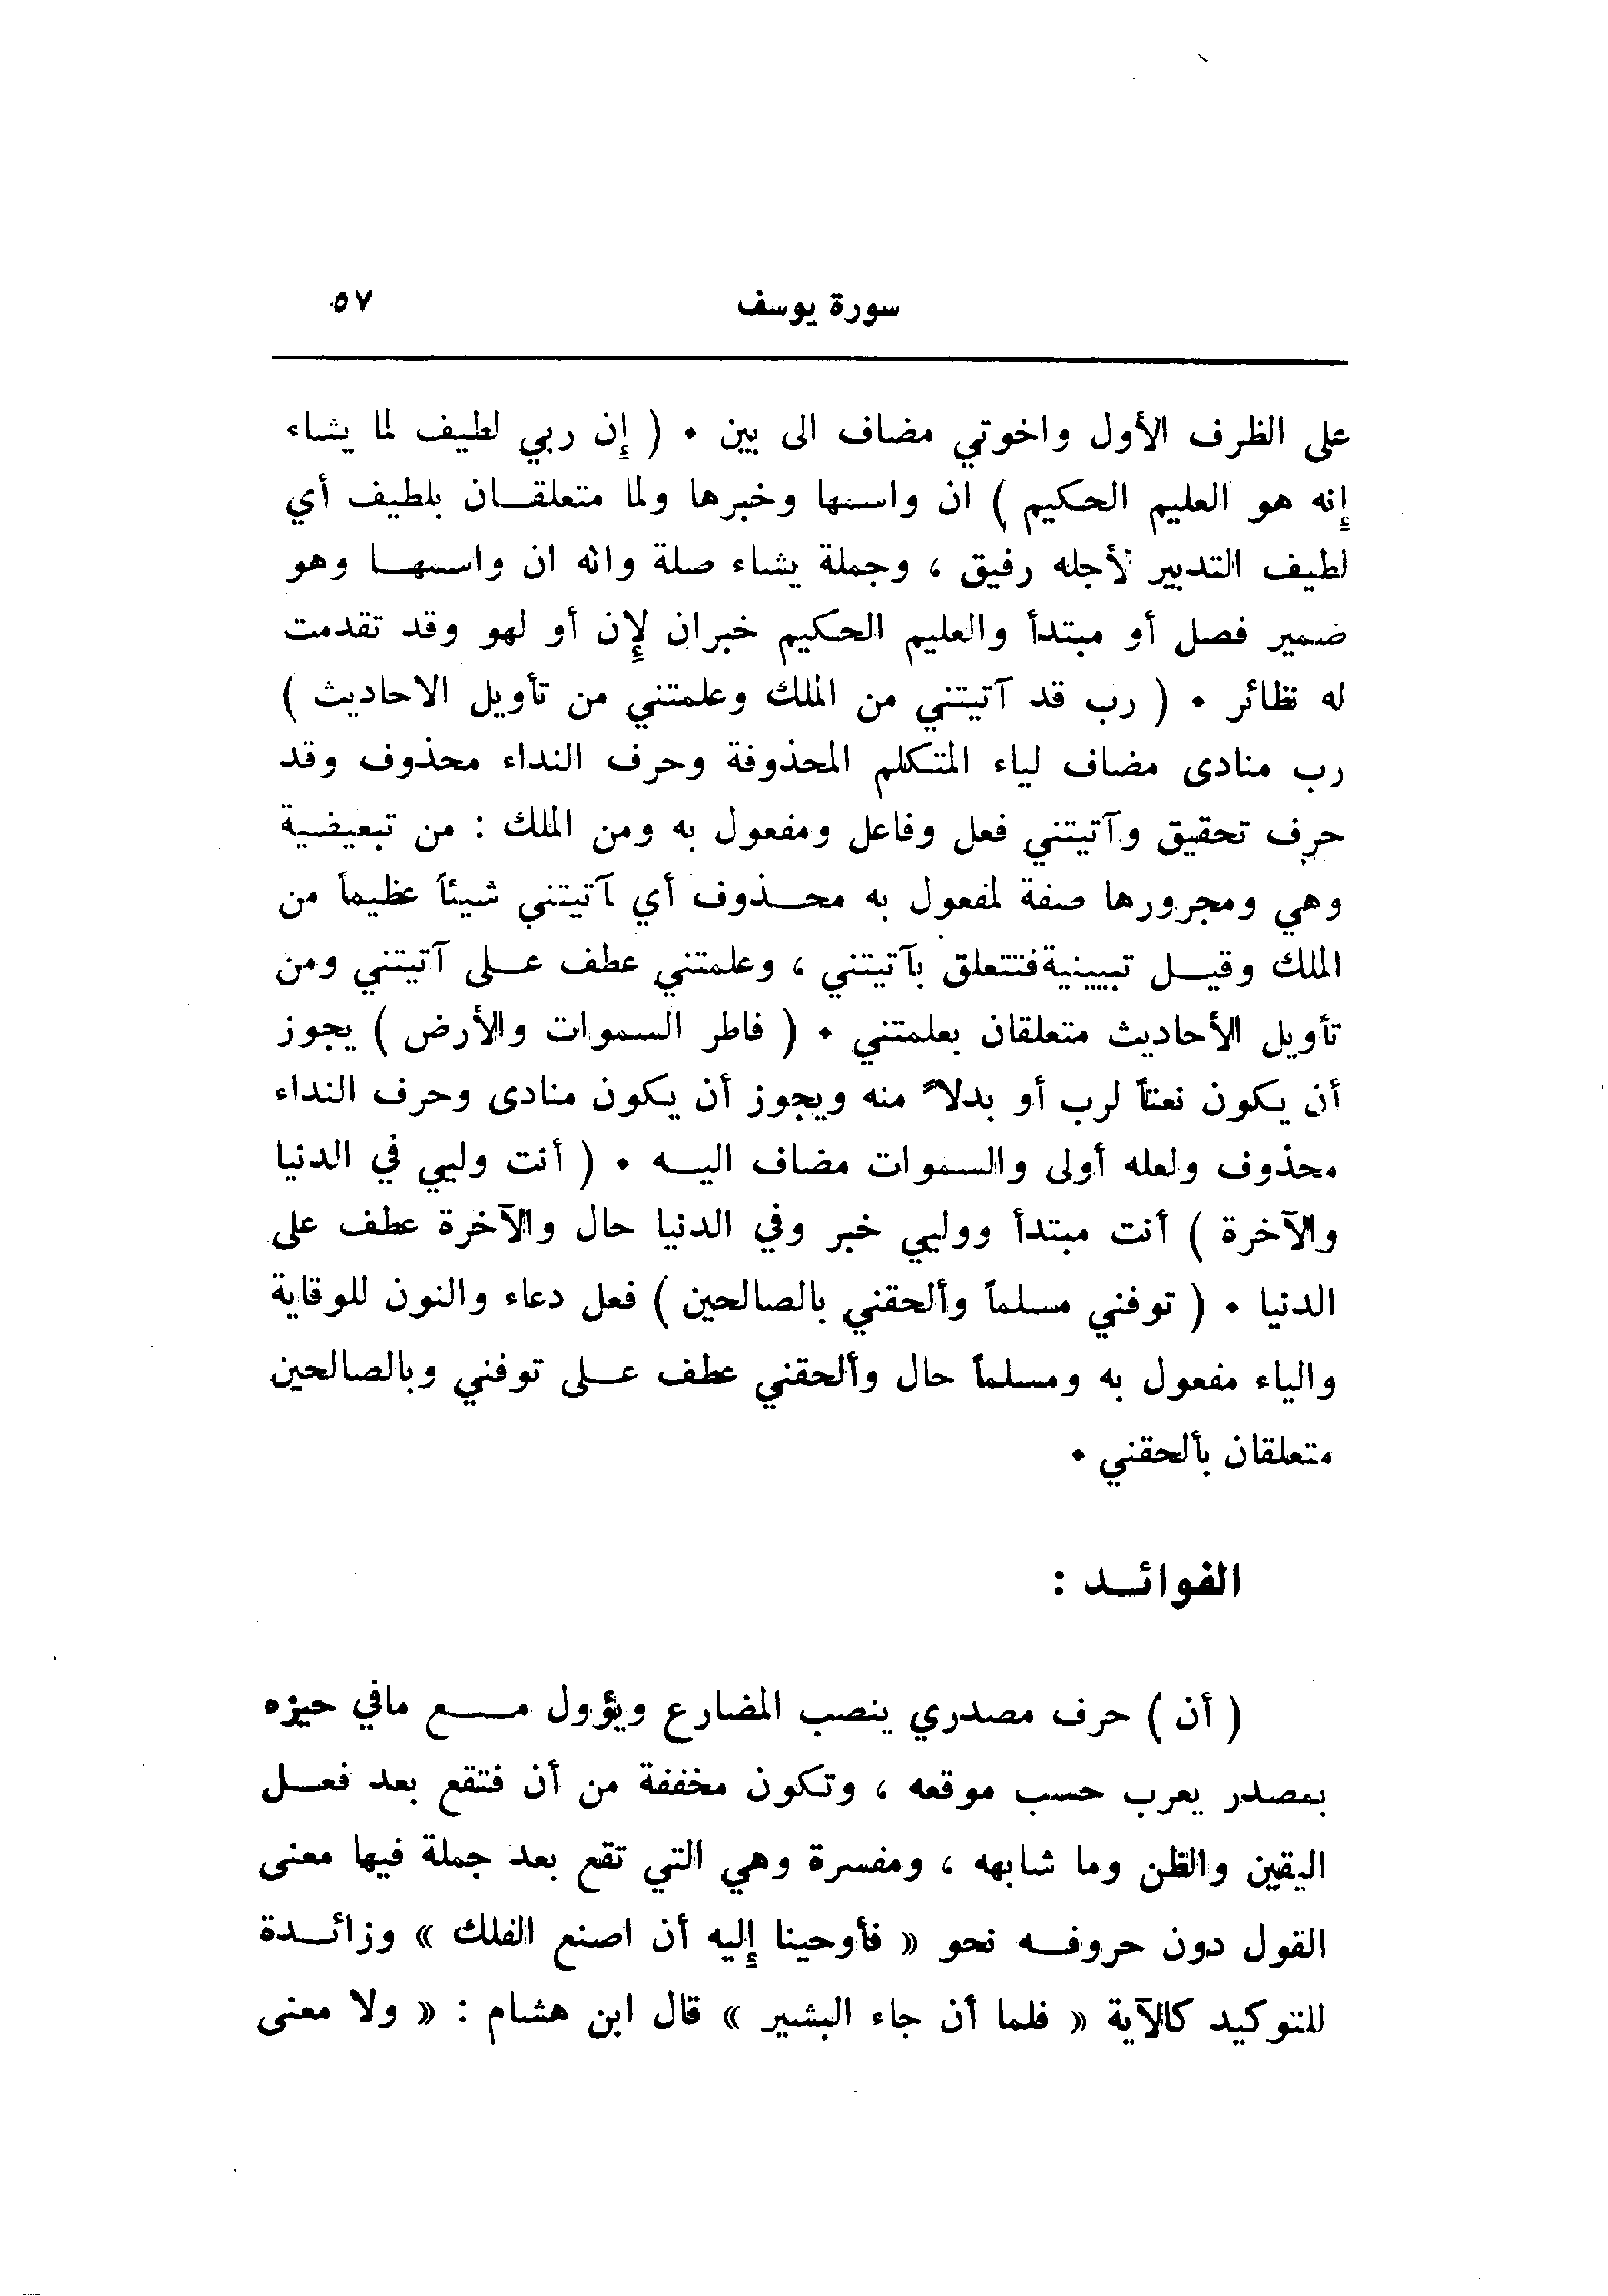 سورة يوسف ٥٧
على الظرف الأول واخوتي مضاف الى بين ٠ ( إن ربي لطيف لما يشاء
إنه هو العليم الحكيم ) ان واسمها وخبرها ولما متعلقـــان بلطيف أي
لطيف التدبير لأجله رفيق ، وجملة يشاء صلة وانه ان واسمهـــا وهو
ضمير فصل أو مبتدأ والعليم الحكيم خبران لإن أو لهو وقد تقدمت
له نظائر ٠ ( رب قد آتيتني من الملك وعلمتني من تأويل الاحاديث )
رب منادى مضاف لياء المتكلم المحذوفة وحرف النداء محذوف وقد
حرف تحقيق وآتيتني فعل وفاعل ومفعول به ومن الملك : من تبعيضية
وهي ومجرورها صفة لمفعول به محـــذوف أي آتيتني شيئاً عظيماً من
الملك وقيـــل تبيينية فتتعلق بآتيتني ، وعلمتني عطف عـــلى آتيتني ومن
تأويل الأحاديث متعلقان بعلمتني ٠ ( فاطر السموات والأرض ) يجوز
أن يكون نعتاً لرب أو بدلاً منه ويجوز أن يكون منادى وحرف النداء
محذوف ولعله أولى والسموات مضاف اليـــه ٠ ( أنت وليي في الدنيا
والآخرة ) أنت مبتدأ ووليي خبر وفي الدنيا حال والآخرة عطف على
الدنيا ٠ ( توفني مسلماً وألحقني بالصالحين ) فعل دعاء والنون للوقاية
والياء مفعول به ومسلماً حال وألحقني عطف عـــلى توفني وبالصالحين
متعلقان بألحقني ٠
الفوائـــد :
( أن ) حرف مصدري ينصب المضارع ويؤول مـــع مافي حيزه
بمصدر يعرب حسب موقعه ، وتكون مخففة من أن فتقع بعد فعـــل
اليقين والظن وما شابهه ، ومفسرة وهي التي تقع بعد جملة فيها معنى
القول دون حروفـــه نحو « فأوحينا إليه أن اصنع الفلك » وزائـــدة
للتوكيد كالآية « فلما أن جاء البشير » قال ابن هشام : « ولا معنى